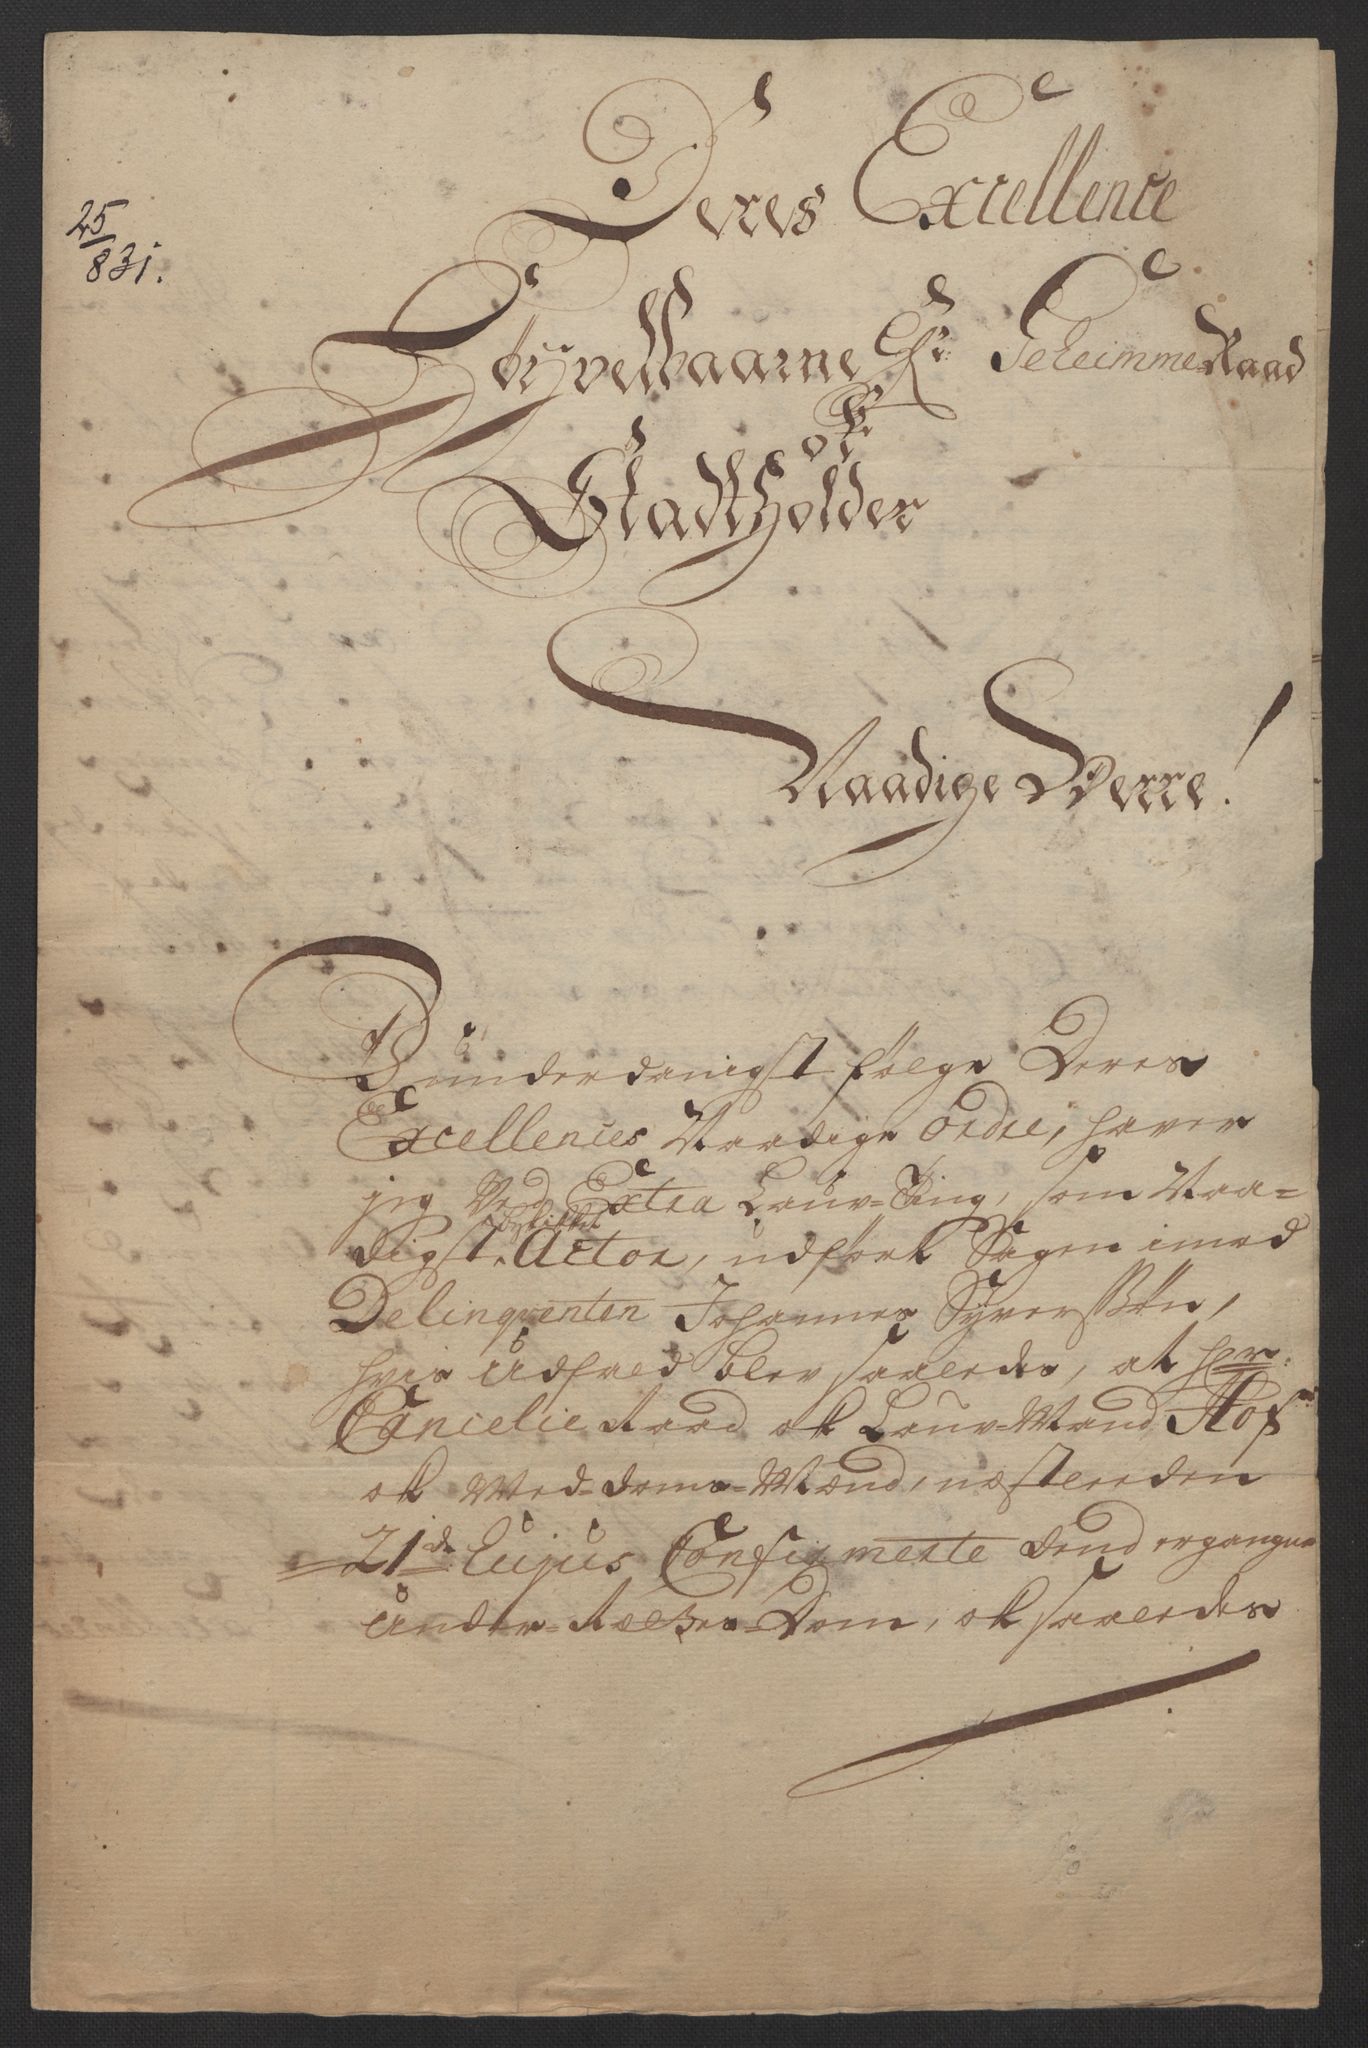 25
831.
Deres Excellence
Høyvelbaarne Hr. Geheimme-Raad
ok
Stadtholder
Naadige Herre!
Underdanigst følge Deres
Excellences Naadige Ordre, haver
jeg Ved Extra Lauv-Ting, som Naa-
beskikket
digst Actor, udført Sagen imod
Delinqventen Johannes Syverssøn,
hvis Udfald blev saaledes, at Herr
Cancelie Raad ok Lauv-Mand
ok Med-doms-Mænd, næstleeden
21de hujus Confirmerte dend ergangne
Under-Rettes-Dom, ok saaledes